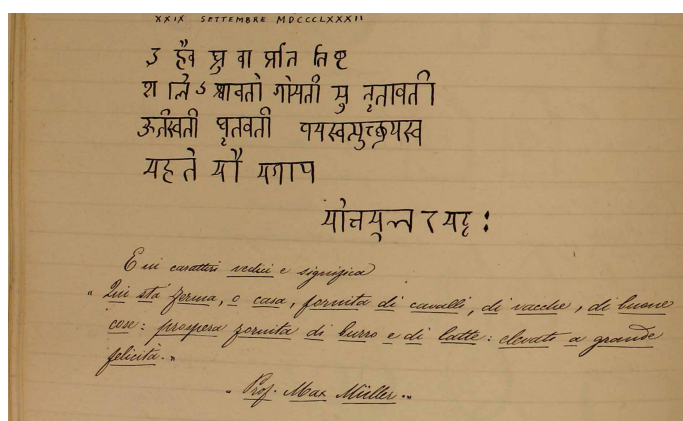 XXIX SETTEMBRE MDCCCLXXXII
इ हैव ध्रु वा प्रति ति ष्ट
शा लेऽ श्वावती गोमती सु नृतावती
ऊर्जस्वती घृतवती पयस्वत्युच्छ्रयस्व
महते सौ भगाय
E in caratteri vedici e significa
"Qui sta ferma, o casa, fornita di cavalli, di vacche, di buone
cose: prospera fornita di burro e di latte: elevati a grande
felicità."
"Prof. Max Müller"